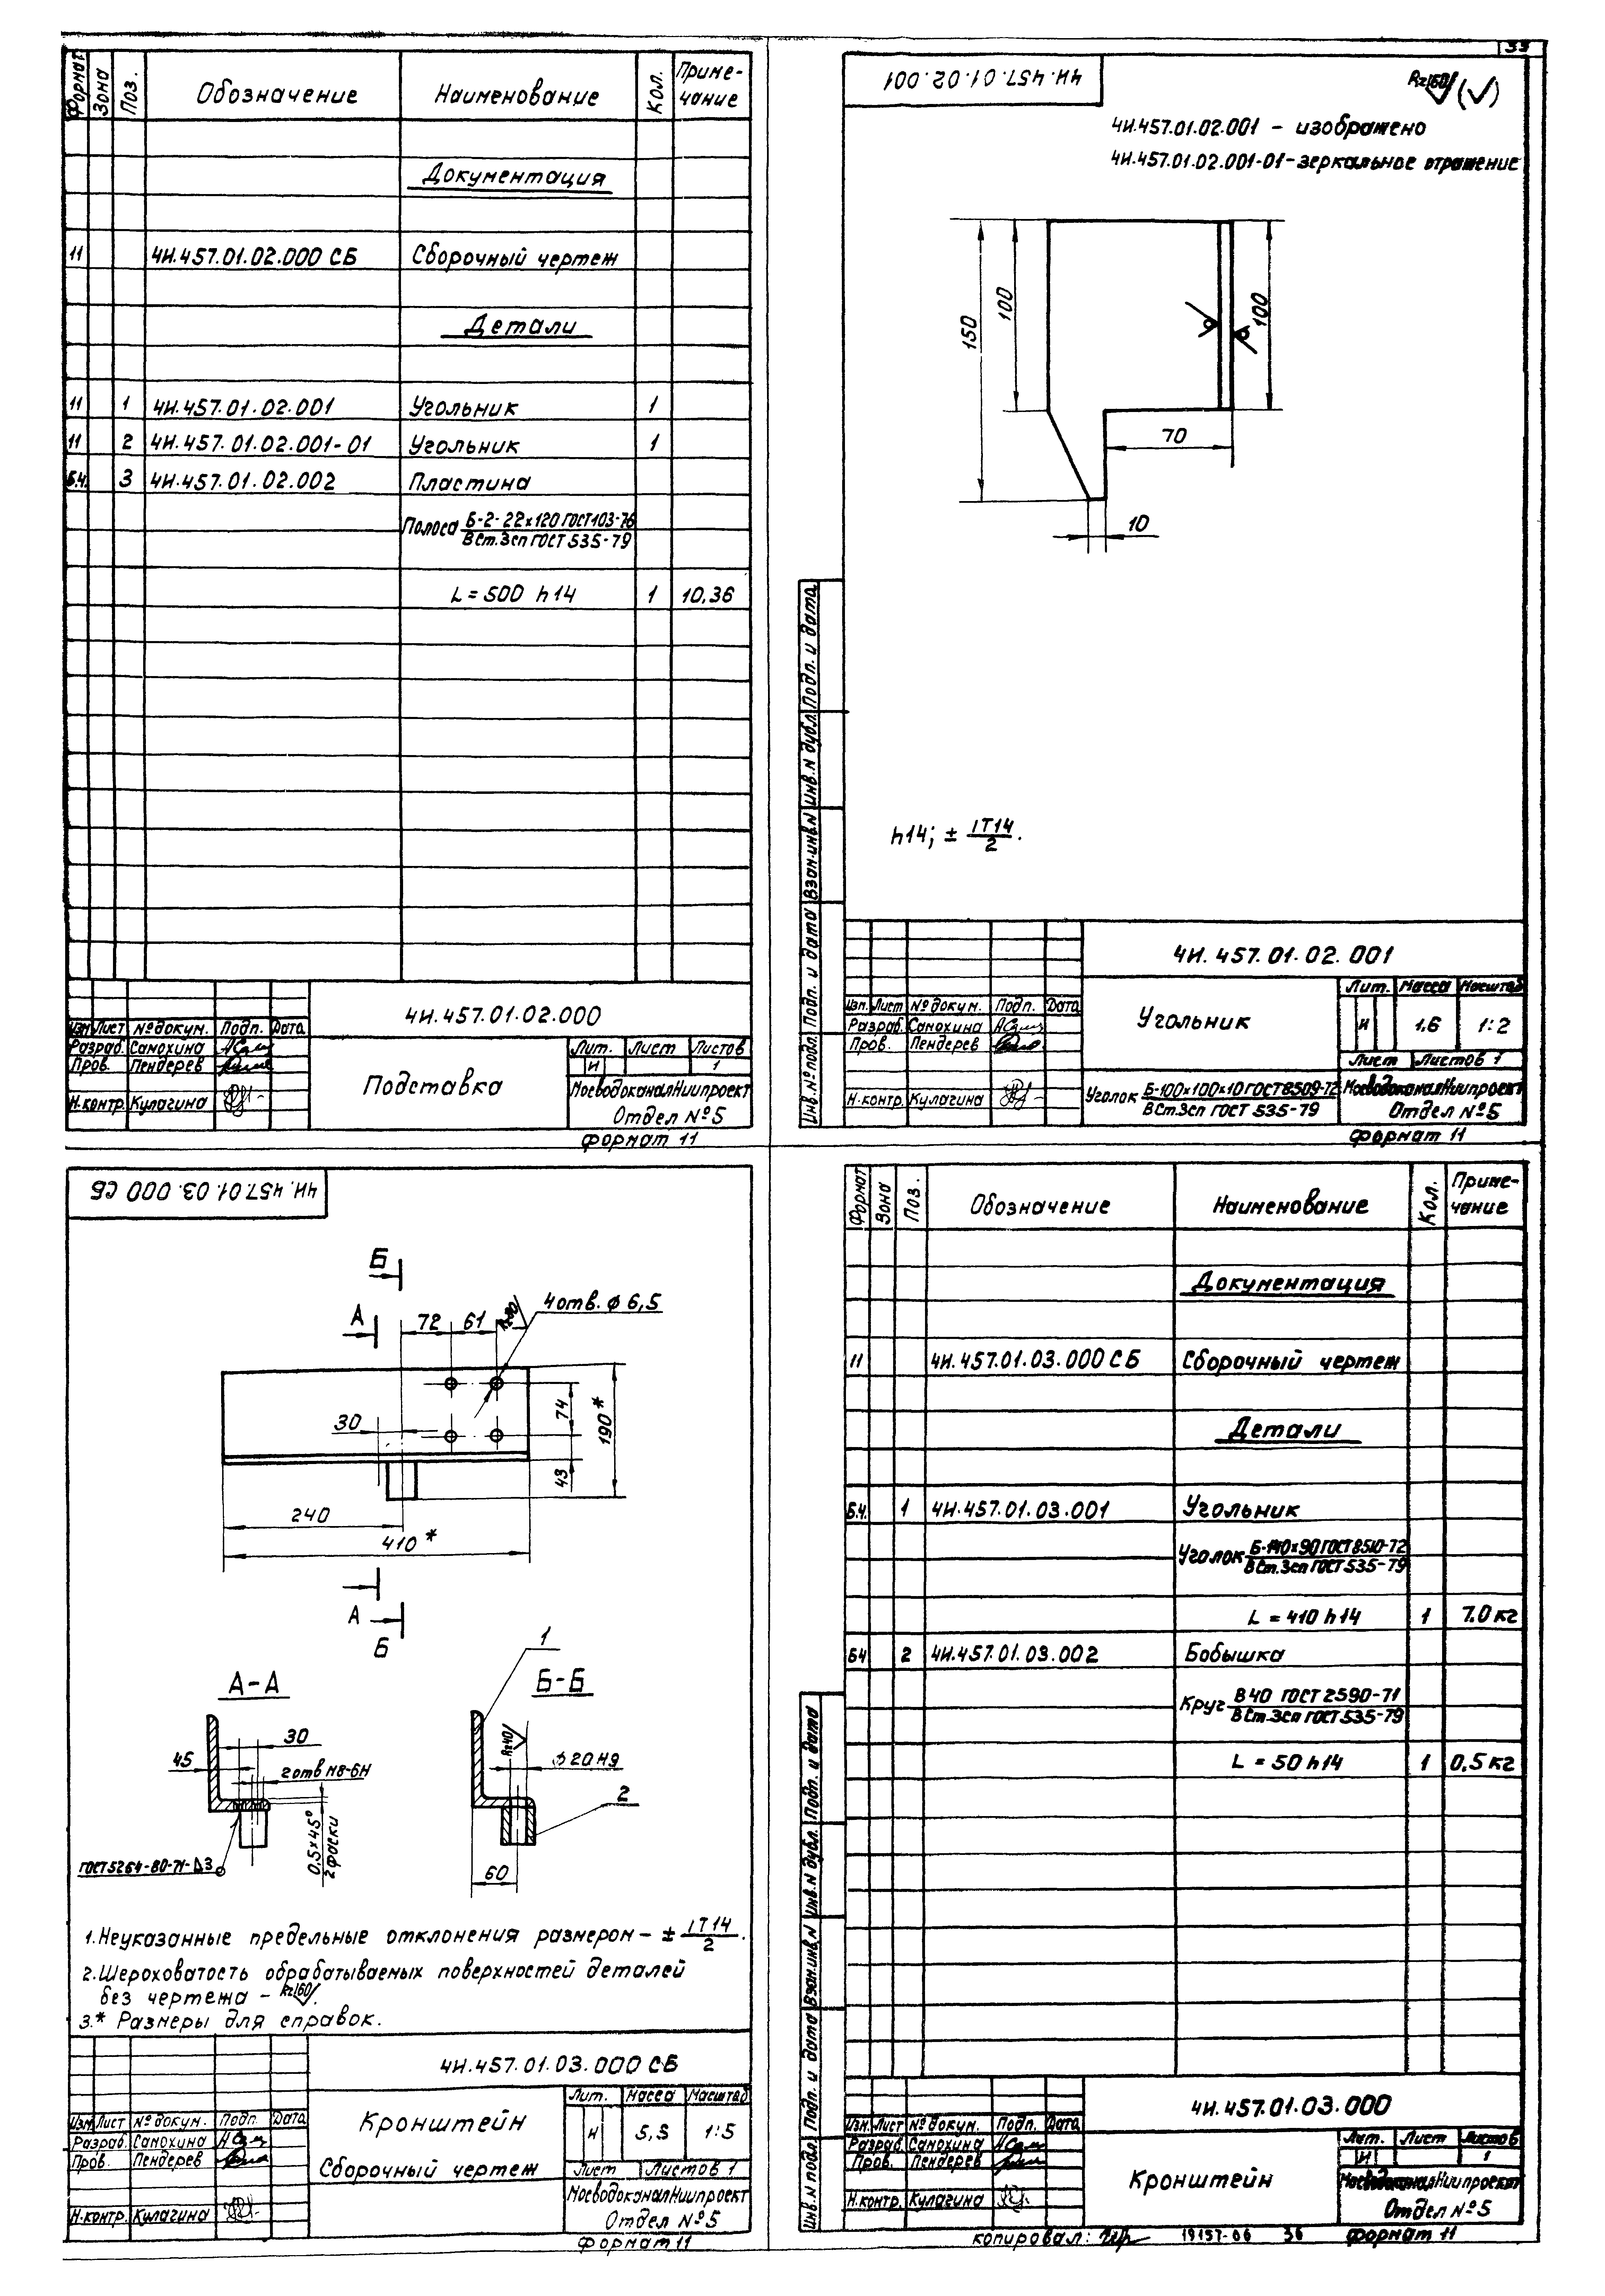 33
Формат Зона Поз. Обозначение Наименование Кол. Примечание
Документация
11 4И.457.01.02.000 СБ Сборочный чертеж
Детали
11 1 4И.457.01.02.001 Угольник 1
11 2 4И.457.01.02.001-01 Угольник 1
Б.Ч. 3 4И.457.01.02.002 Пластина
Полоса Б-2-22×120 ГОСТ103-76
В Ст.3сп ГОСТ 535-79
L = 500 h14 1 10,36
4И.457.01.02.000
Изм Лист № докум. Подп. Дата
Разраб. Самохина
Пров. Пендерев
Н.контр. Кулагина
Подставка
Лит. Лист Листов
И 1
МосводоканалНиипроект
Отдел №5
Формат 11
4И.457.01.02.001
Rz160 (√)
4И.457.01.02.001 - изображено
4И.457.01.02.001-01-зеркальное отражение
150
100
100
70
10
h14; ± IT14
2 .
Подп. и дата
Инв.N дубл.
Взам.инв.N
Подп. и дата
Инв.№ подл.
4И.457.01.02.001
Изм. Лист № докум. Подп. Дата
Разраб. Самохина
Пров. Пендерев
Н.контр. Кулагина
Угольник
Лит. Масса Масштаб
И 1,6 1:2
Лист Листов 1
Уголок Б-100×100×10 ГОСТ8509-72
В Ст.3сп ГОСТ 535-79
МосводоканалНиипроект
Отдел №5
Формат 11
4И.457.01.03.000 СБ
Б
А
72 61
4 отв. ϕ 6,5
30
74
190*
43
240
410*
А
Б
1
А-А
Б-Б
30
45
2 отв М8-6Н
0.5×45°
2 фаски
ГОСТ5264-80-Т1-⊿3
Rz40
ϕ 20 Н9
2
60
1. Неуказанные предельные отклонения размером - ± IT14
2 .
2. Шероховатость обрабатываемых поверхностей деталей
без чертежа - Rz160.
3.* Размеры для справок.
4И.457.01.03.000 СБ
Изм Лист № докум. Подп. Дата
Разраб. Самохина
Пров. Пендерев
Н.контр. Кулагина
Кронштейн
Сборочный чертеж
Лит. Масса Масштаб
И 1:5
Лист Листов 1
МосводоканалНиипроект
Отдел №5
Формат 11
Формат Зона Поз. Обозначение Наименование Кол. Примечание
Документация
11 4И.457.01.03.000 СБ Сборочный чертеж
Детали
Б.Ч. 1 4И.457.01.03.001 Угольник
Уголок Б-140×90 ГОСТ8510-72
В Ст.3сп ГОСТ 535-79
L = 410 h14 1 7.0 кг
БЧ 2 4И.457.01.03.002 Бобышка
Круг В 40 ГОСТ 2590-71
В Ст.3сп ГОСТ 535-79
L = 50 h14 1 0,5 кг
Подп. и дата
Инв.N дубл.
Взам.инв.N
Подп. и дата
Инв.N подл.
4И.457.01.03.000
Изм. Лист № докум. Подп. Дата
Разраб. Самохина
Пров. Пендерев
Н.контр. Кулагина
Кронштейн
Лит. Лист Листов
И 1
МосводоканалНиипроект
Отдел №5
копировал: 19157-06 36 Формат 11